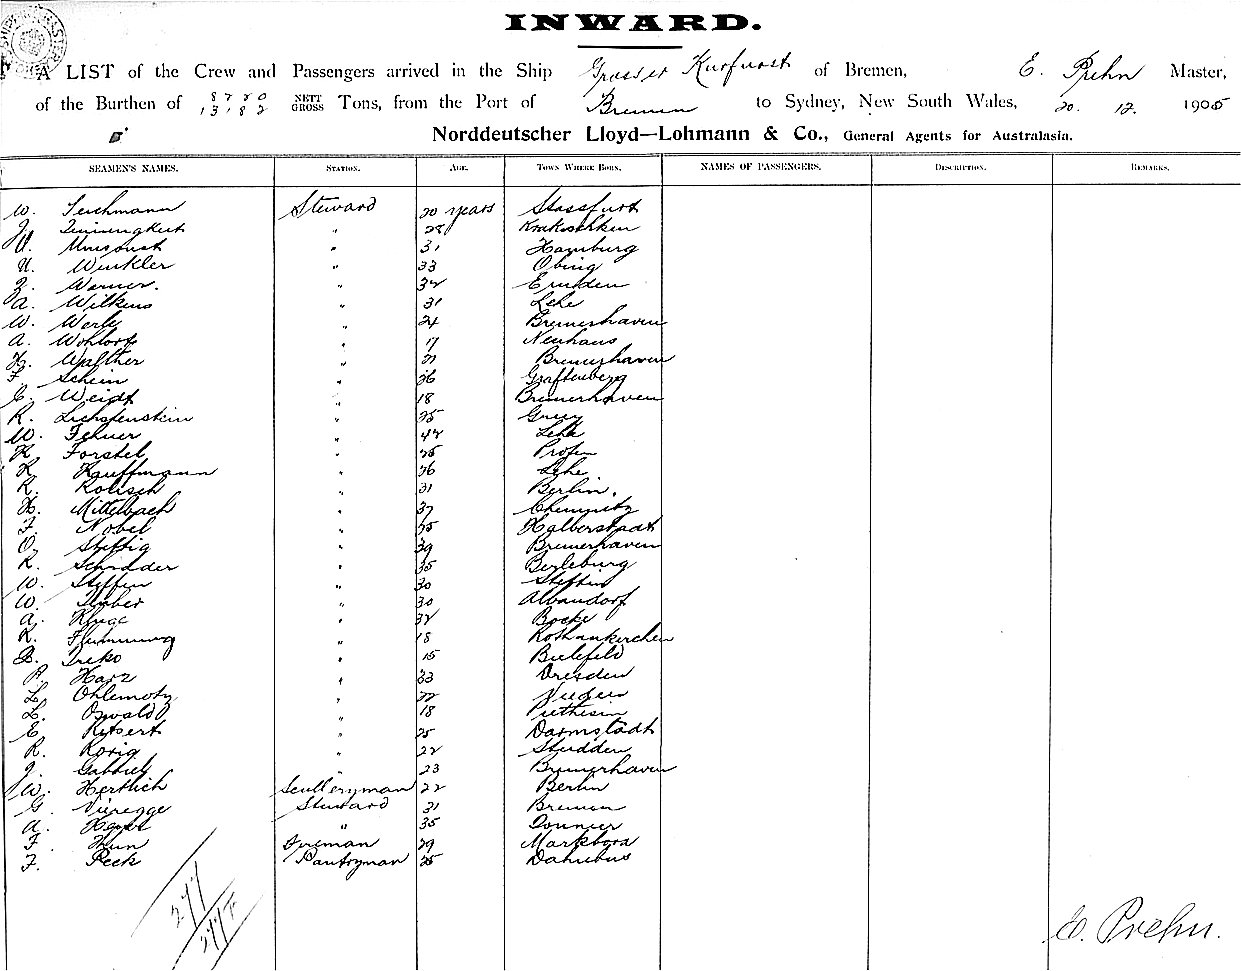 INWARD.
A LIST of the Crew and Passengers arrived in the Ship Grosser Kurfurst of Bremen, E. Prehn Master,
of the Burthen of 8720 13182 NETT GROSS Tons, from the Port of Bremen to Sydney, New South Wales, 20. 12. 1905
Norddeutscher Lloyd—Lohmann & Co., General Agents for Australasia.
SEAMEN'S NAMES. STATION. AGE. TOWN WHERE BORN. NAMES OF PASSENGERS. DESCRIPTION. REMARKS.
W. Teichmann Steward 20 years Stassfurt
" 28
" 31 Hamburg
Winkler " 33 Obing
Werner. " 32 Emden
A. Wilkens " 31 Lehe
W. Werle " 24 Bremerhaven
A. Wohldorf " 17 Neuhaus
H. Walther " 21 Bremerhaven
F. Schein " 26 Grafenberg
E. Weidt " 18 Bremerhaven
R. Lichtenstein " 25
W. Fehner " 42 Lehe
K. Forstel " 25
K. Kauffmann " 26 Lehe
R. Kolisch " 31 Berlin.
H. Mittelbach " 37 Chemnitz
F. Nobel " 25 Halberstadt
O. Steffig " 39 Bremerhaven
R. Schridder " 35 Berleburg
W. Steffen " 30 Stettin
W. " 30 Albendorf
A. Kluge " 32 Bocke
R. Flemming " 18 Rothenkirchen
B. Treko " 15 Bielefeld
P. Harz " 33 Dresden
L. Ohlemotz " 22
L. Oswald " 18
E. Ritsert " 25 Darmstadt
R. Korig " 22 Studden
J. Gabriel " 23 Bremerhaven
W. Hertlich Sculleryman 22 Berlin
G. Vieregge Steward 31 Bremen
A. " 35
F. Fireman 29
F. Peek Pantryman 25
277
277
E. Prehn.